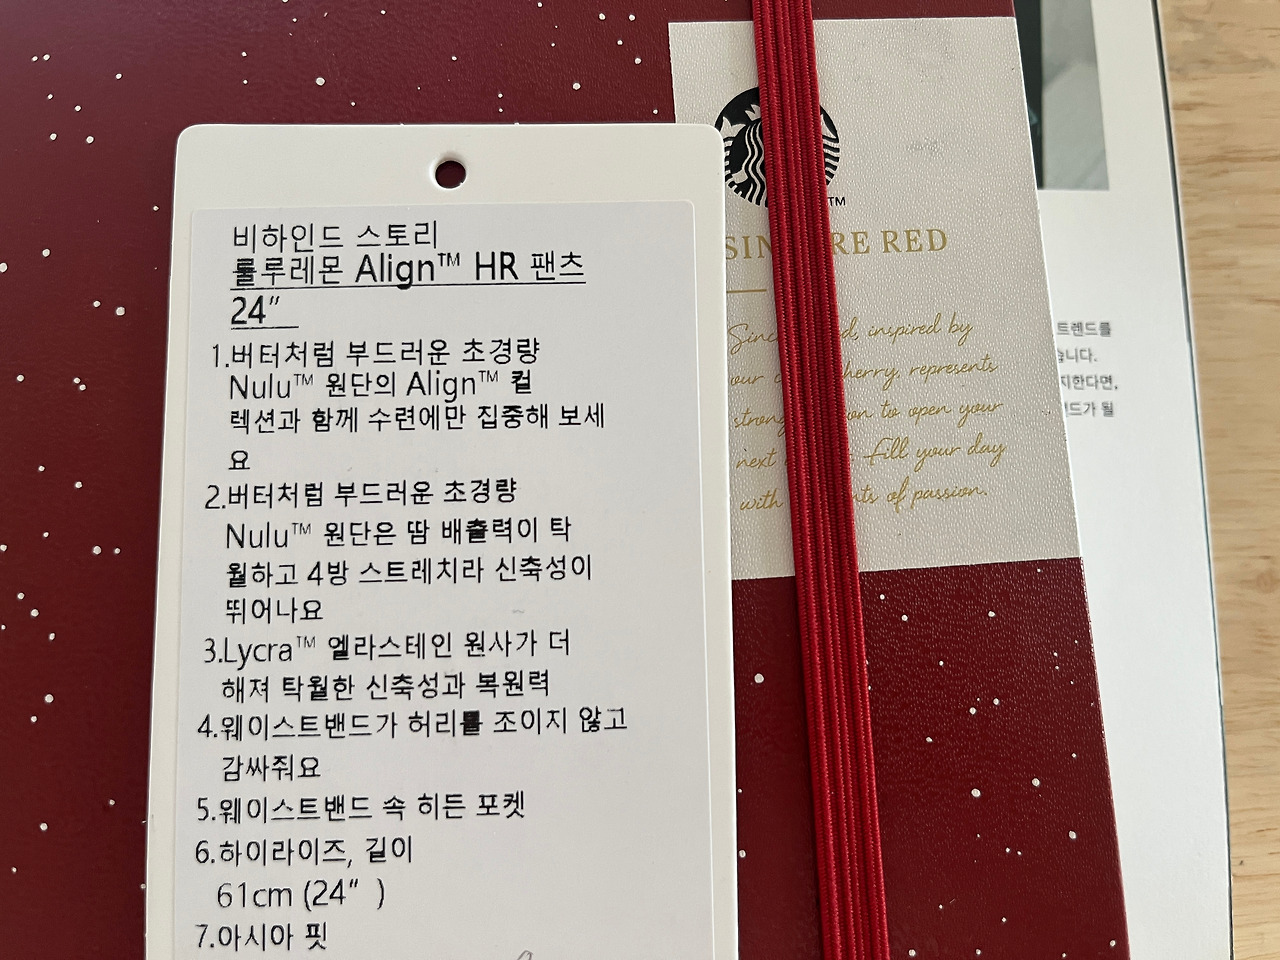 비하인드 스토리
룰루레몬 Align™ HR 팬츠
24"
1.버터처럼 부드러운 초경량
Nulu™ 원단의 Align™ 컬
렉션과 함께 수련에만 집중해 보세
요
2.버터처럼 부드러운 초경량
Nulu™ 원단은 땀 배출력이 탁
월하고 4방 스트레치라 신축성이
뛰어나요
3.Lycra™ 엘라스테인 원사가 더
해져 탁월한 신축성과 복원력
4.웨이스트밴드가 허리를 조이지 않고
감싸줘요
5.웨이스트밴드 속 히든 포켓
6.하이라이즈, 길이
61cm (24" )
7.아시아 핏
TM
RE RED
inspired by
our herry, represents
to open your
next fill your day
with of passion.
트렌드를
습니다.
지한다면,